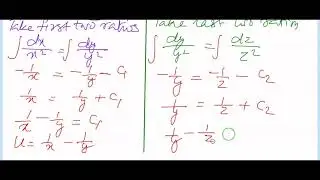 Take first two ratios
∫ dx/x² = ∫ dy/y²
-1/x = -1/y - C₁
1/x = 1/y + C₁
1/x - 1/y = C₁
u = 1/x - 1/y
Take last two ratios
∫ dy/y² = ∫ dz/z²
-1/y = -1/z - C₂
1/y = 1/z + C₂
1/y - 1/z